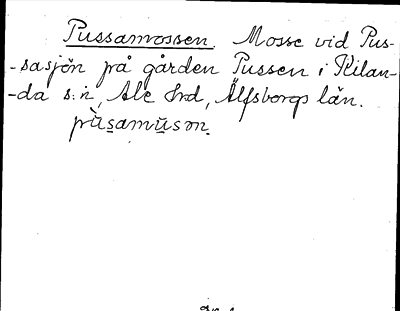 Pussamossen. Mosse vid Pus-
-sasjön på gården Pussen i Kilan-
-da s:n, Ale hrd, Älfsborgs län.